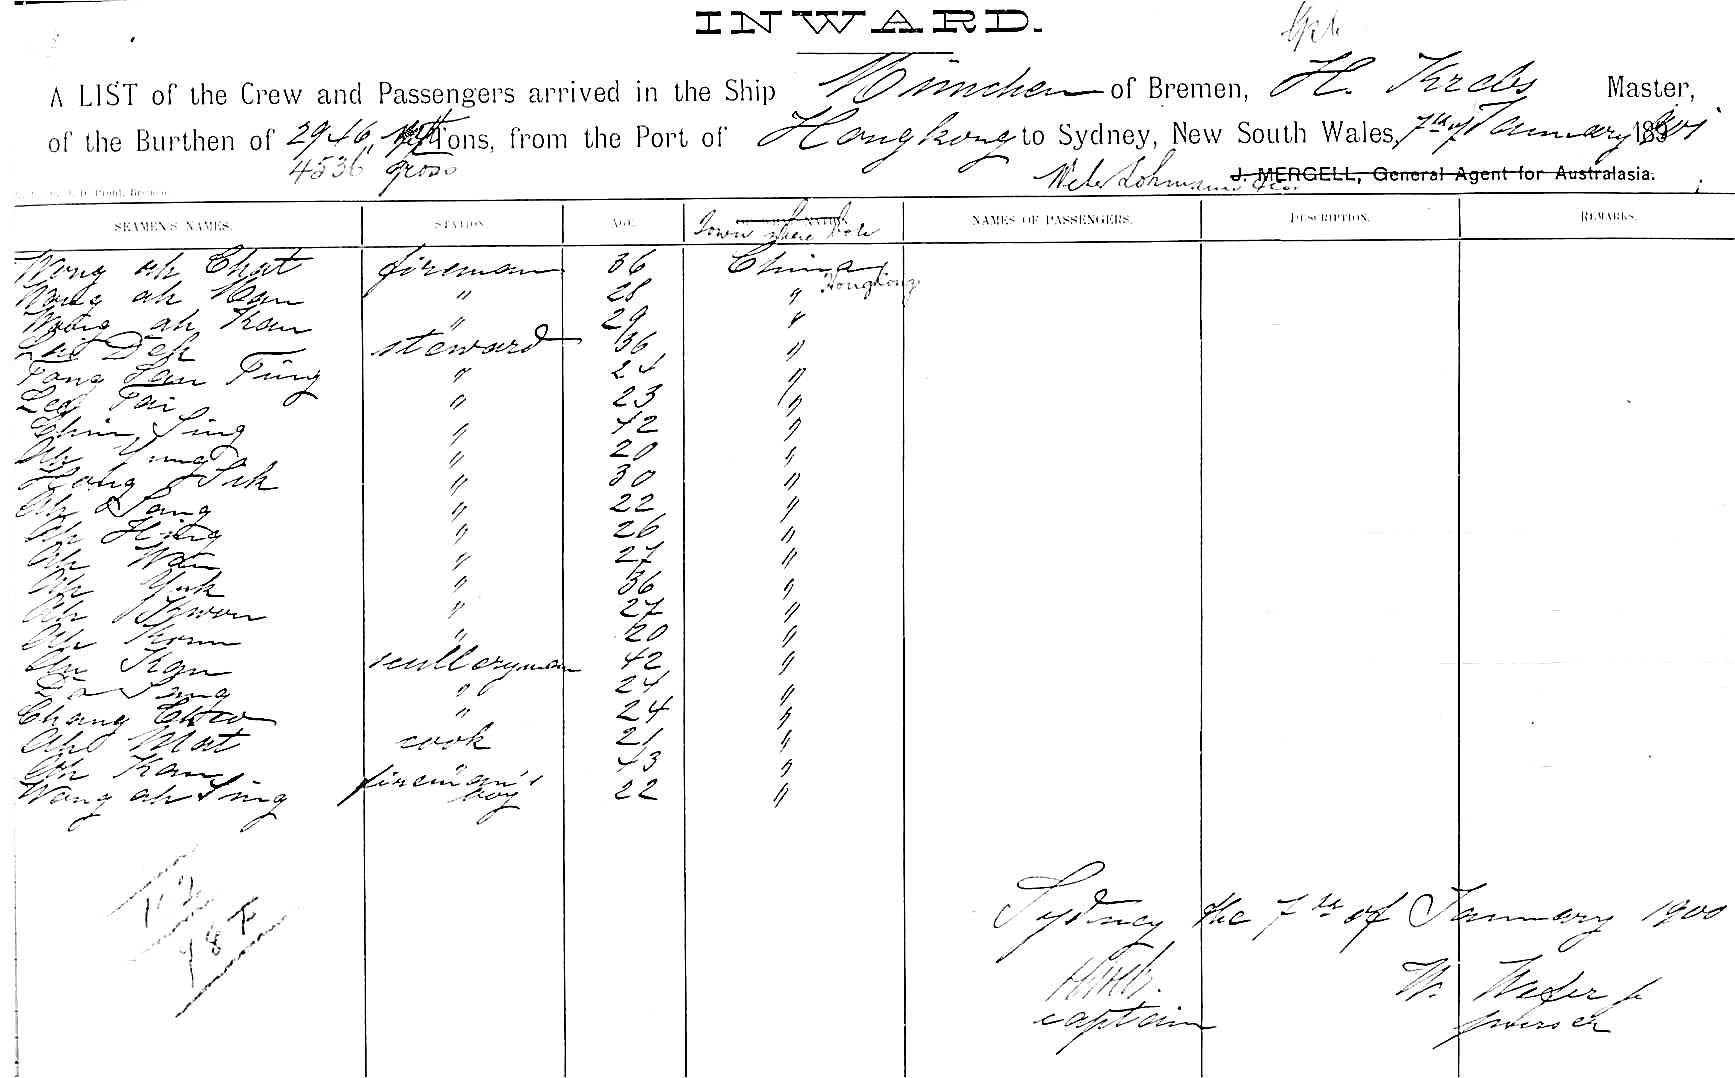 INWARD.
A LIST of the Crew and Passengers arrived in the Ship München of Bremen, H. Krebs Master,
of the Burthen of 2946 nett Tons, from the Port of Hongkong to Sydney, New South Wales, 7th of January 1901
4536 gross
J. MERGELL, General Agent for Australasia.
SEAMEN'S NAMES. STATION AGE. Town where NAMES OF PASSENGERS. DESCRIPTION. REMARKS.
Wong ah Chat fireman 36 China
Wong ah Man " 28 " Hongkong
Wong ah Kan " 29 "
Deh steward 36 "
Fong San Ting " 24 "
Lee Tai " 23 "
Chin Sing " 42 "
Ah Yung " 20 "
Hong Sik " 30 "
Ah Sang " 22 "
Ah Hing " 26 "
Ah Wan " 27 "
Ah Yuk " 36 "
Ah Kwon " 27 "
Ah " 20 "
Ah Kan sculleryman 42 "
Sang " 24 "
Chang Chow " 24 "
Mat cook 21 "
Ah Kan " 43 "
Wong ah Sing fireman's boy 22 "
112
187
Sydney the 7th of January 1900
captain
W.
purser